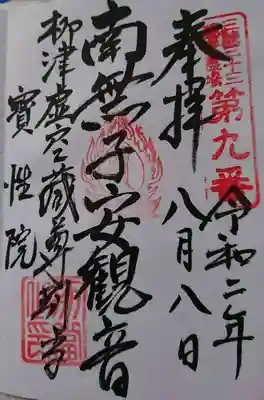 第九番
令和二年
八月八日
奉拝
南無子安観音
柳津虚空蔵尊別当
寳性院